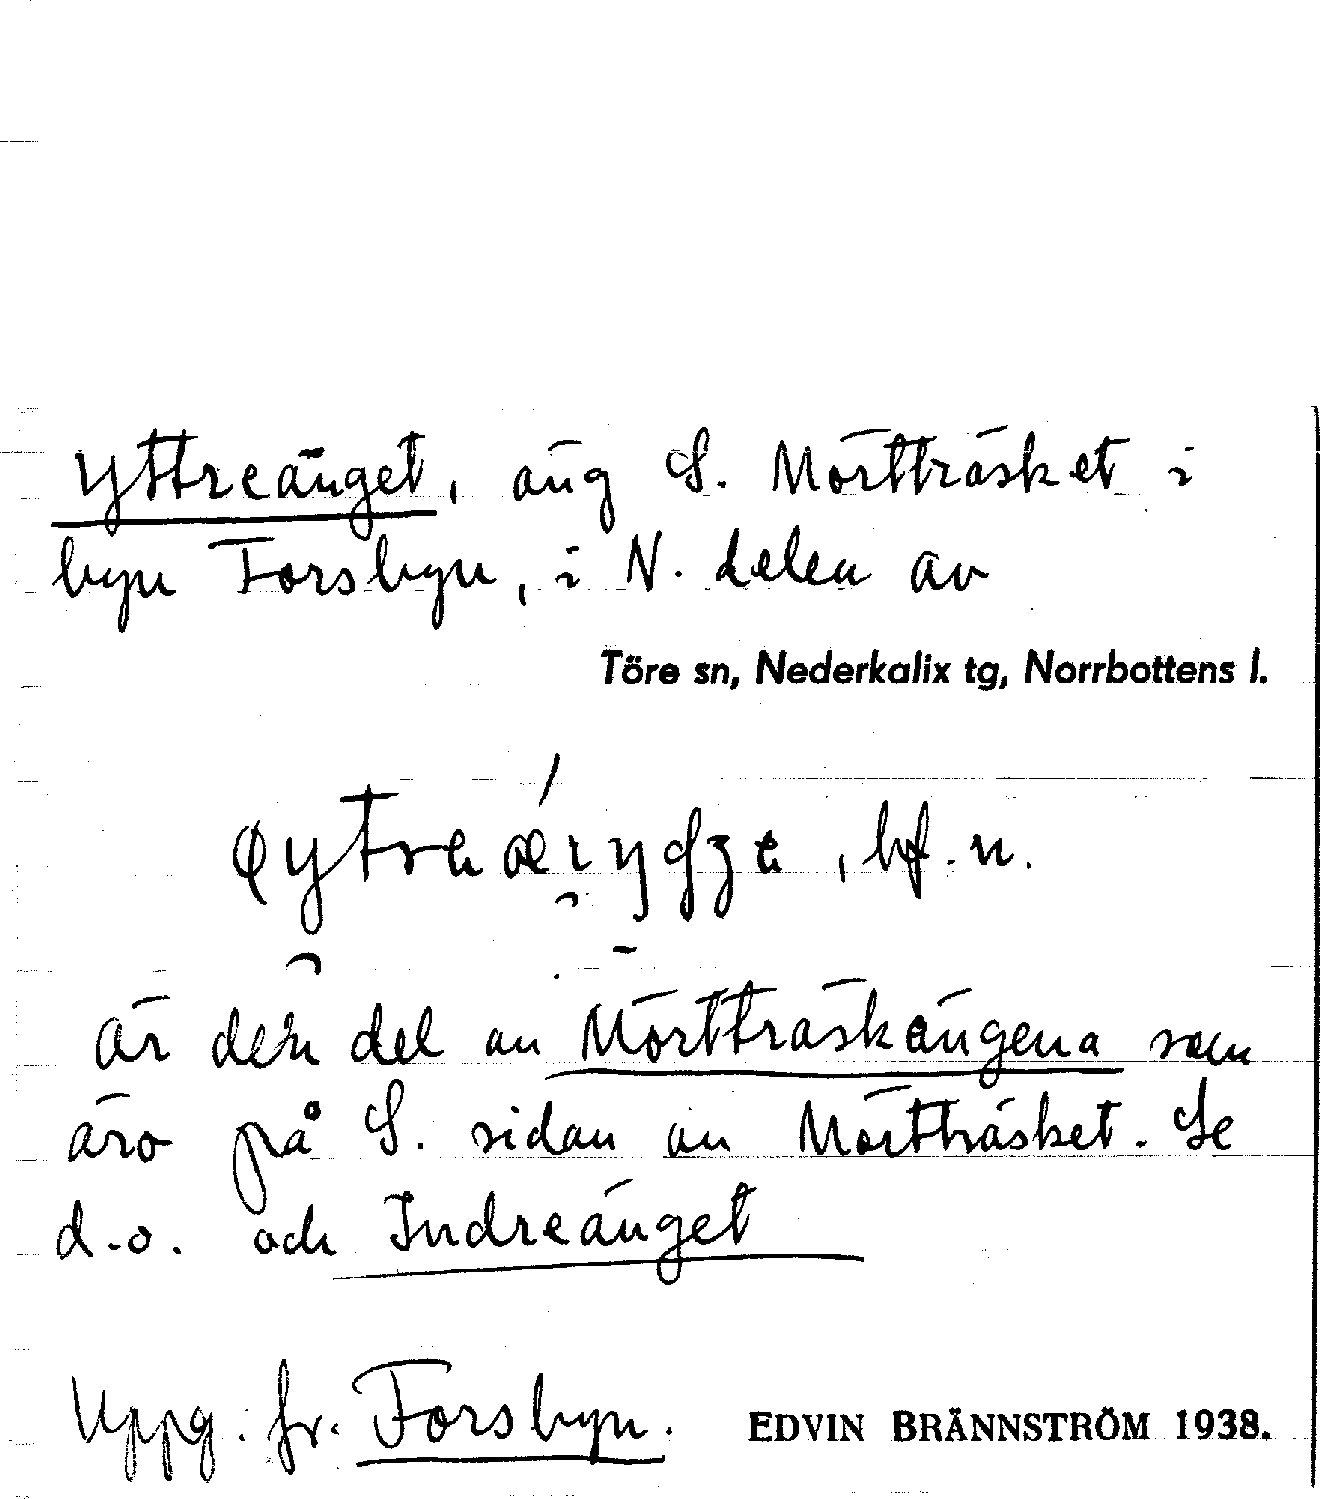 Yttreänget, äng S. Mörtträsket i
byn Forsbyn, i N. delen av
Töre sn, Nederkalix tg, Norrbottens l.
, bf. n.
Är den del av Mörtträskängena som
äro på S. sidan av Mörtträsket. Se
d.o. och Indreänget
Uppg. fr. Forsbyn.
EDVIN BRÄNNSTRÖM 1938.